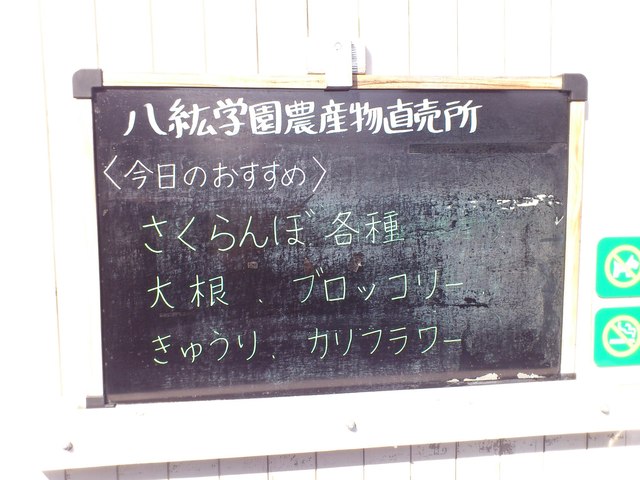 八紘学園農産物直売所
〈今日のおすすめ〉
さくらんぼ 各種
大根、ブロッコリー
きゅうり、カリフラワー